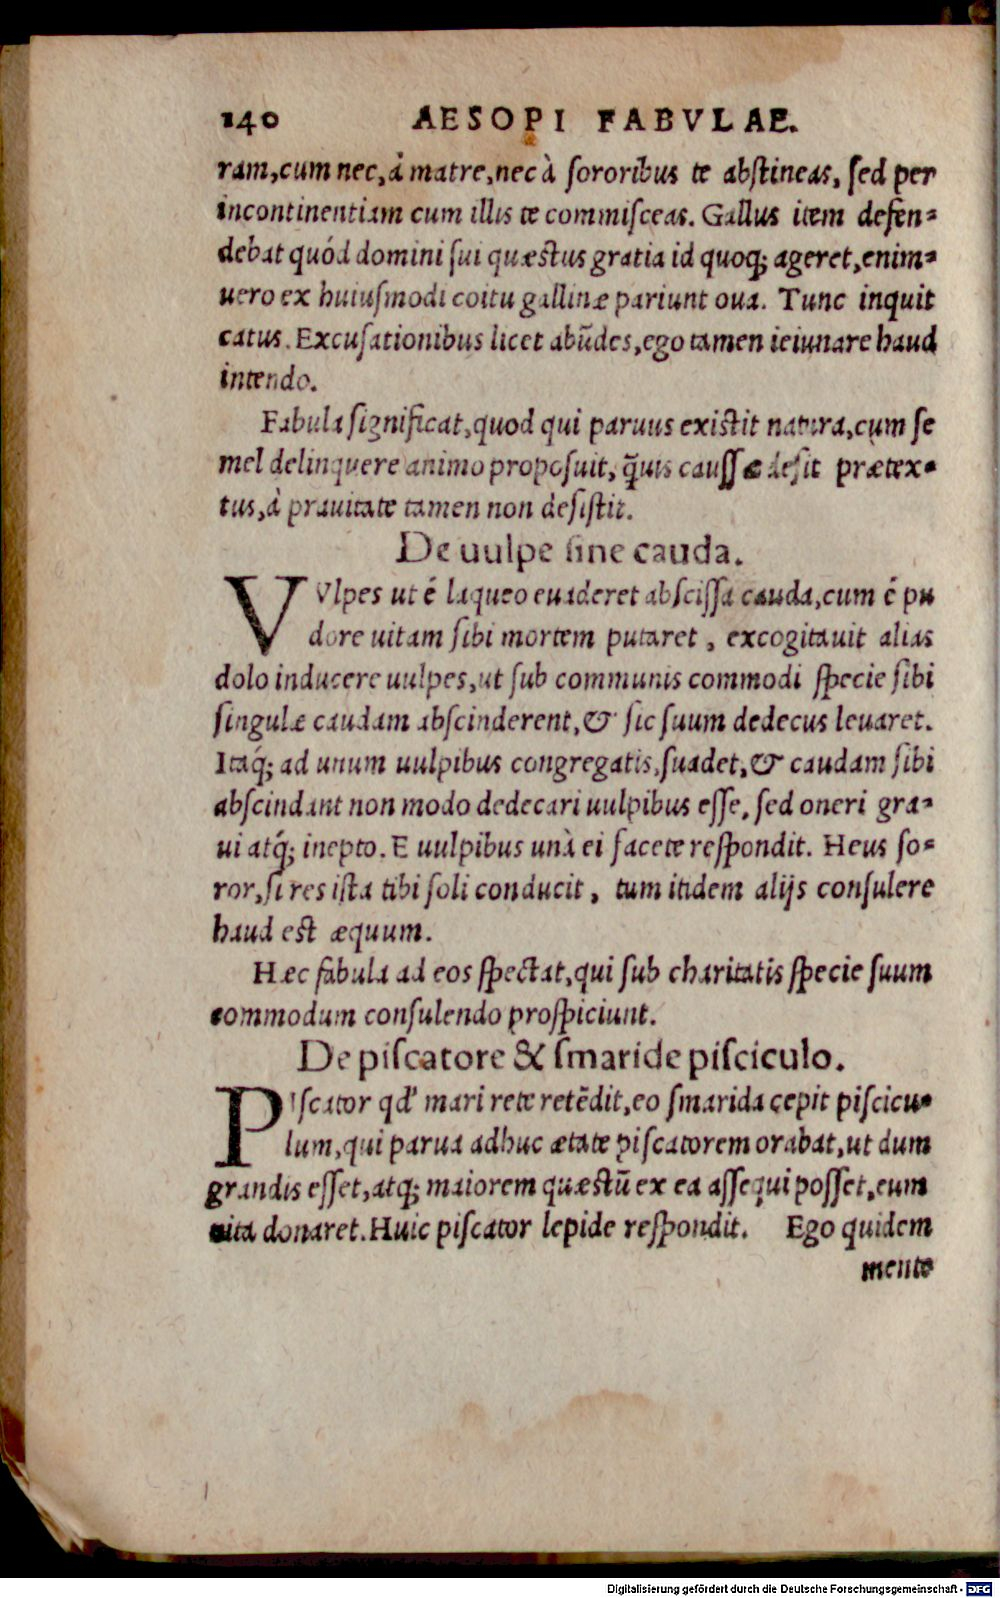 140 AESOPI FABVLAE.
ram,cum nec,à matre,nec à ſororibus te abſtineas, ſed per
incontinentiam cum illis te commiſceas. Gallus item defen-
debat quód domini ſui quæſtus gratia id quoq; ageret,enim-
uero ex huiuſmodi coitu gallinæ pariunt oua. Tunc inquit
catus. Excuſationibus licet abũdes,ego tamen ieiunare haud
intendo.
Fabula ſignificat,quod qui paruus exiſtit natura,cum ſe
mel delinquere animo propoſuit, q̃uis cauſſæ deſit prætex-
tus,à prauitate tamen non deſiſtit.
De uulpe ſine cauda.
VVlpes ut ẽ laqueo euaderet abſciſſa cauda,cum ẽ pu
dore uitam ſibi mortem putaret, excogitauit alias
dolo inducere uulpes,ut ſub communis commodi ſpecie ſibi
ſingulæ caudam abſcinderent,& ſic ſuum dedecus leuaret.
Itaq́; ad unum uulpibus congregatis,ſuadet,& caudam ſibi
abſcindant non modo dedecari uulpibus eſſe, ſed oneri gra-
ui atq́; inepto. E uulpibus unà ei facete reſpondit. Heus ſo-
ror,ſi res iſta tibi ſoli conducit, tum itidem alijs conſulere
haud eſt æquum.
Hæc fabula ad eos ſpectat,qui ſub charitatis ſpecie ſuum
commodum conſulendo proſpiciunt.
De piſcatore & ſmaride piſciculo.
PIſcator qd' mari rete retẽdit,eo ſmarida cepit piſcicu-
lum,qui parua adhuc ætate piſcatorem orabat,ut dum
grandis eſſet,atq; maiorem quæſtũ ex ea aſſequi poſſet,eum
uita donaret. Huic piſcator lepide reſpondit. Ego quidem
mente
Digitalisierung gefördert durch die Deutsche Forschungsgemeinschaft - DFG